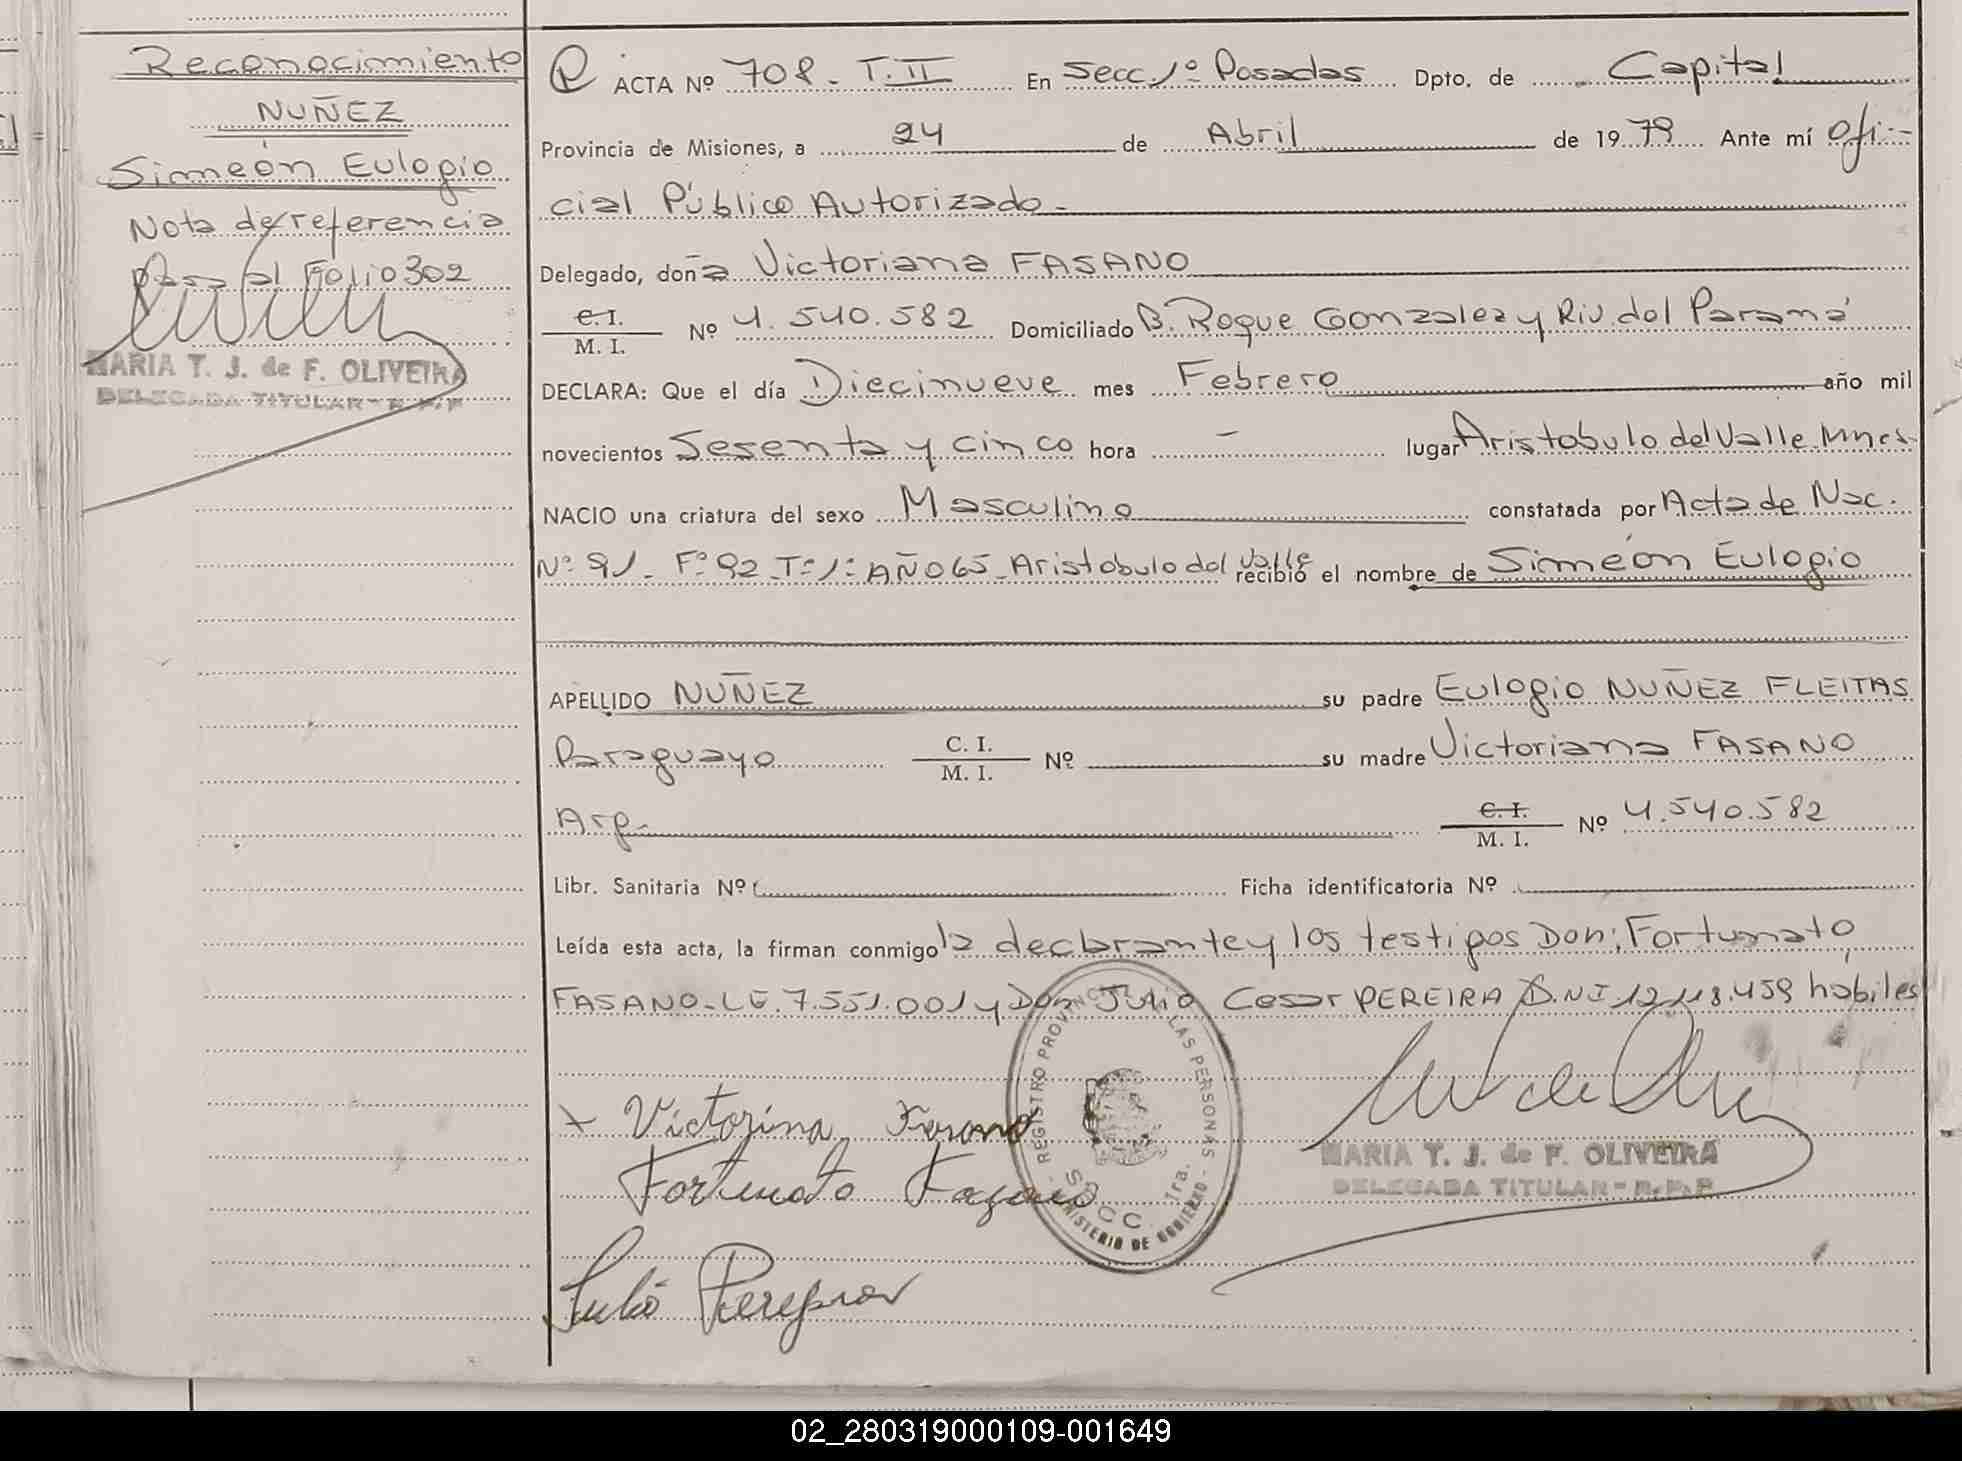 Reconocimiento
NUÑEZ
Simeón Eulogio
Nota de referencia
Pasa al Folio 302
MARIA T. J. de F. OLIVEIRA
DELEGADA TITULAR - R. P. P.
ACTA Nº 708 - T. II En Secc. 1º Posadas Dpto. de Capital
Provincia de Misiones, a 24 de Abril de 1979 Ante mí Ofi-
cial Público Autorizado -
Delegado, doña Victoriana FASANO
C. I. / M. I. Nº 4.540.582 Domiciliado B. Roque Gonzalez y Riv. del Paraná
DECLARA: Que el día Diecinueve mes Febrero año mil
novecientos Sesenta y cinco hora - lugar Aristobulo del Valle. Mnes.
NACIO una criatura del sexo Masculino constatada por Acta de Nac.
Nº 91 - Fº 92 - Tº 1º AÑO 65 - Aristobulo del Valle recibió el nombre de Simeón Eulogio
APELLIDO NUÑEZ su padre Eulogio NUÑEZ FLEITAS
Paraguayo C. I. / M. I. Nº su madre Victoriana FASANO
Arg. C. I. / M. I. Nº 4.540.582
Libr. Sanitaria Nº Ficha identificatoria Nº
Leída esta acta, la firman conmigo la declarante y los testigos Don: Fortunato
FASANO - LE. 7.551.001 y Don Julio Cesar PEREIRA D.N.I 12.118.459 habiles
x Victorina Fasano
Fortunato Fasano
REGISTRO PROVINCIAL LAS PERSONAS
SECC. 1ra.
MINISTERIO DE GOBIERNO
MARIA T. J. de F. OLIVEIRA
DELEGADA TITULAR - R. P. P.
02_280319000109-001649